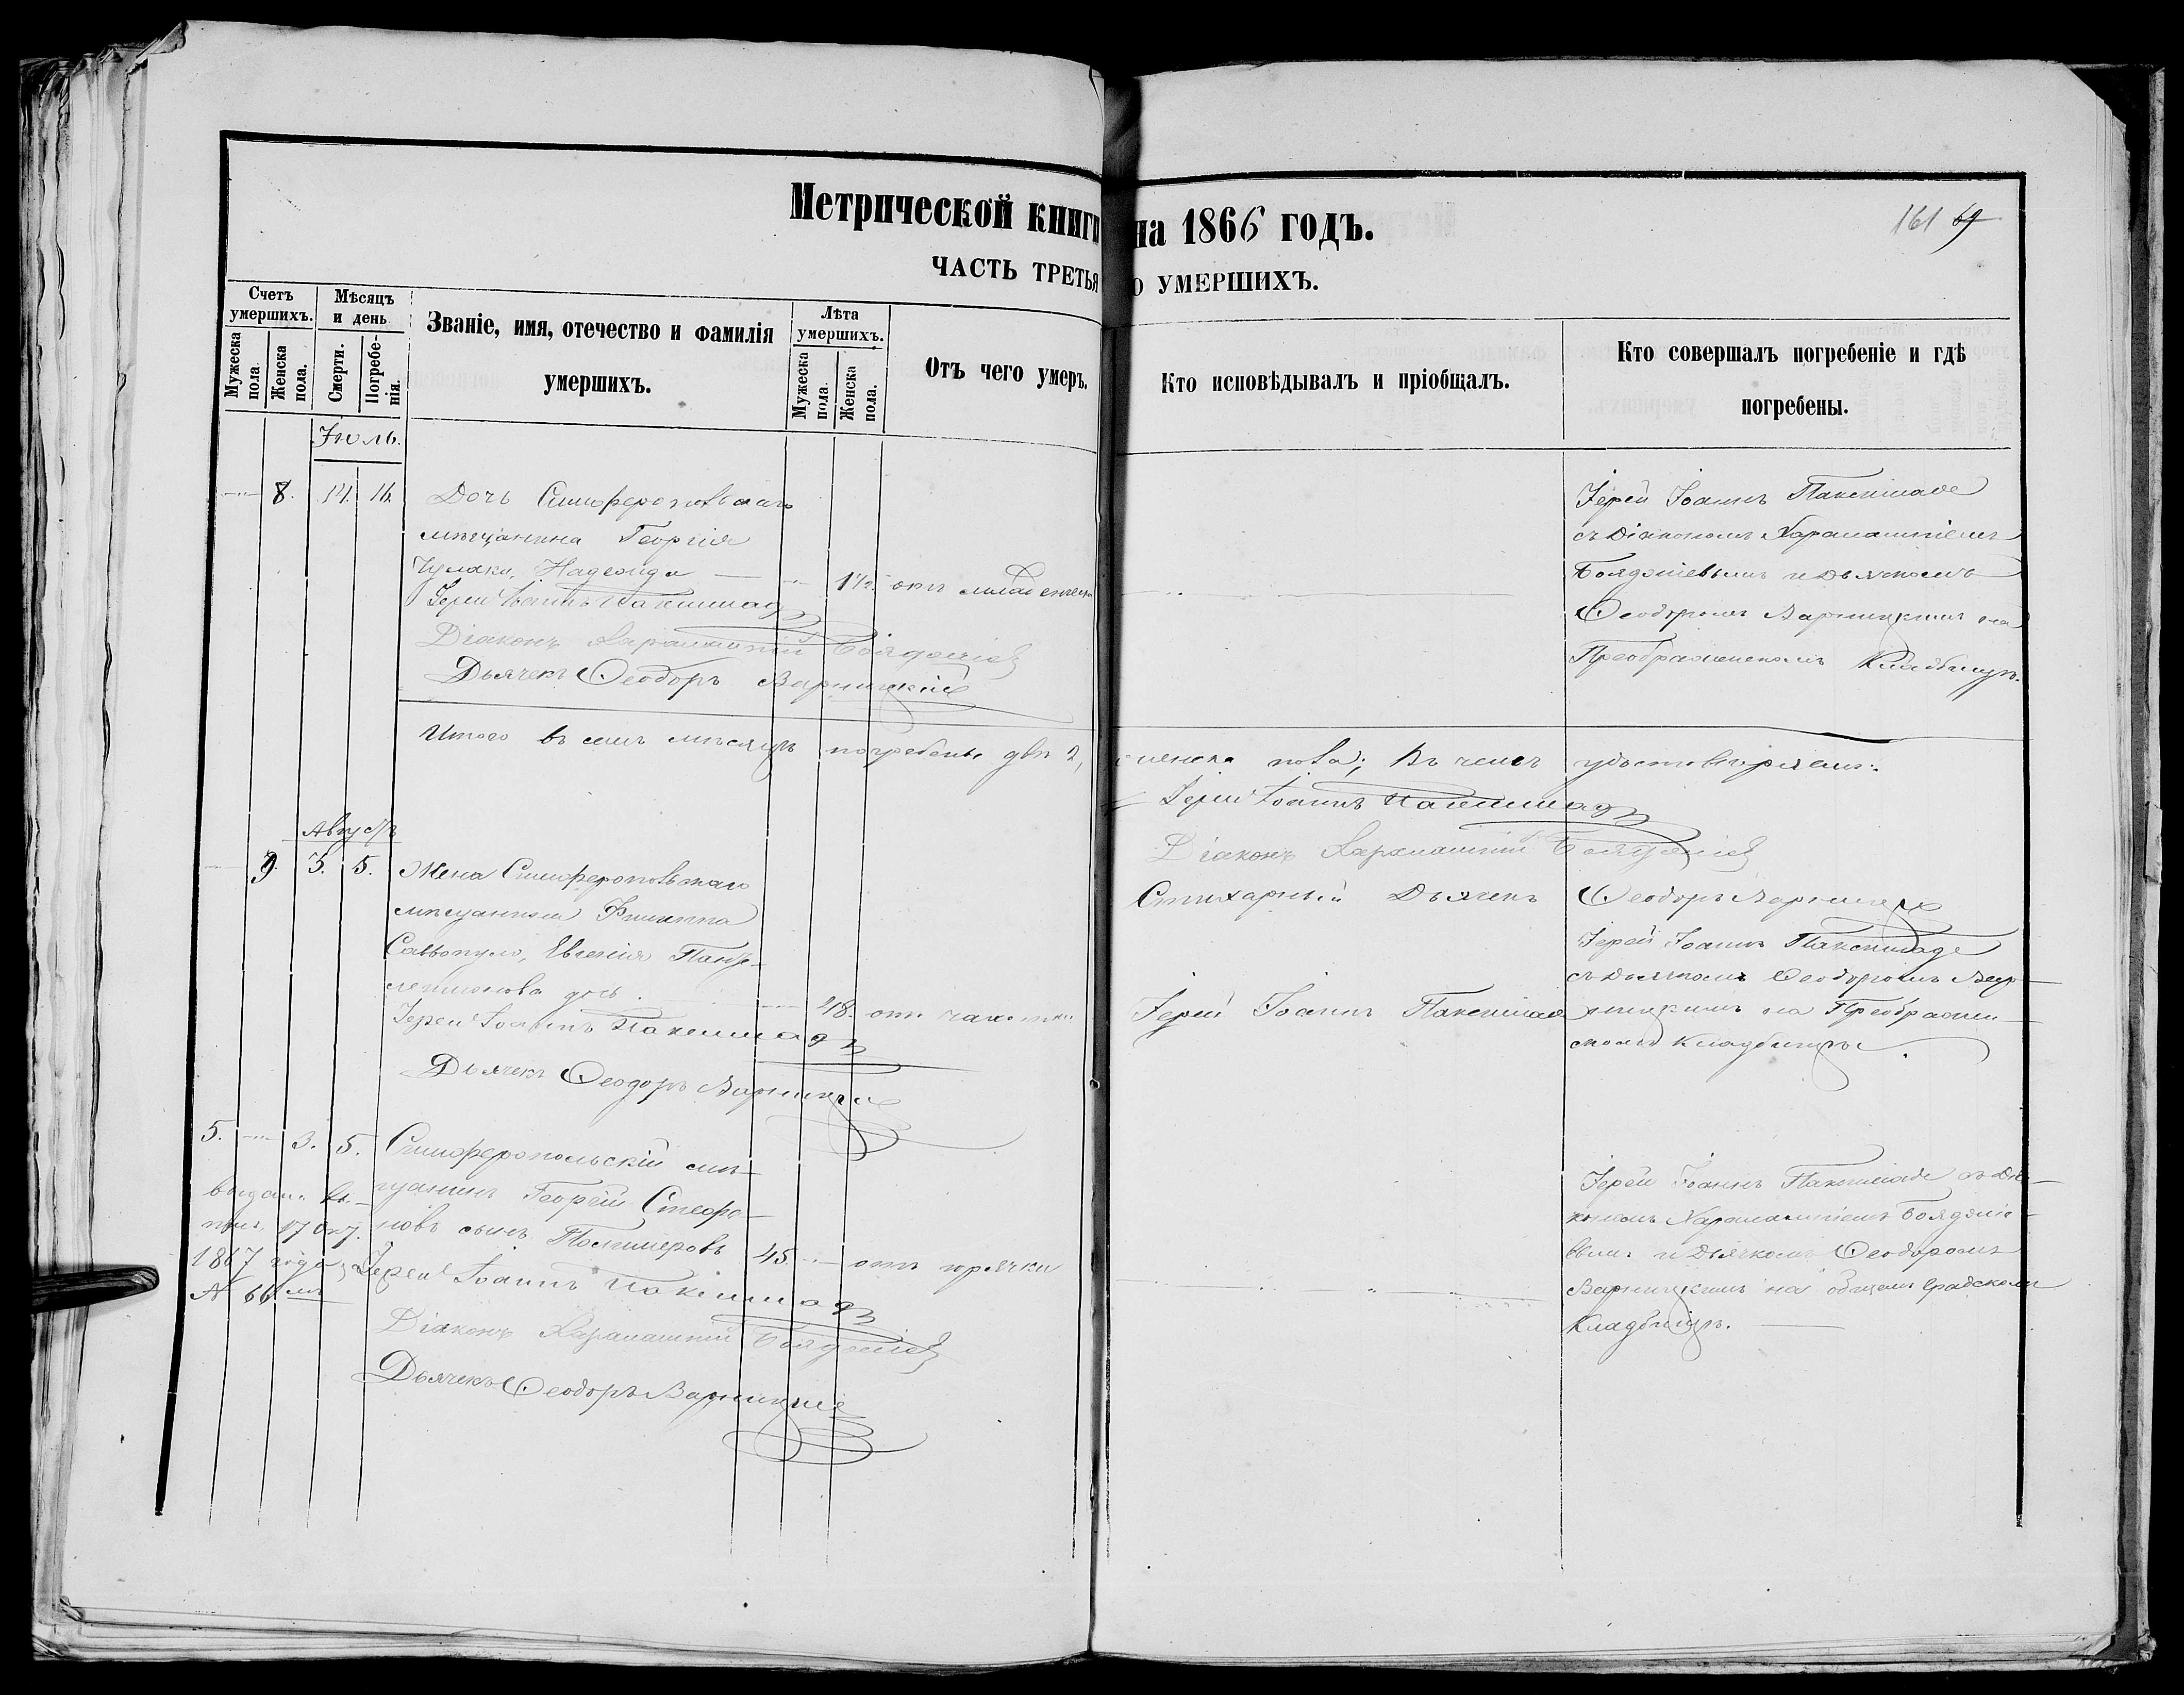 Метрической книги на 1866 годъ.
161 69
ЧАСТЬ ТРЕТЬЯ О УМЕРШИХЪ.
Счетъ умершихъ.
Мужеска пола.
Женска пола.
Мѣсяцъ и день
Смерти.
Погребенія.
Званіе, имя, отечество и фамилія умершихъ.
Лѣта умершихъ.
Мужеска пола.
Женска пола.
Отъ чего умеръ.
Кто исповѣдывалъ и пріобщалъ.
Кто совершалъ погребеніе и гдѣ погребены.
Іюль.
8. 14. 16.
Дочь Симферопольскаго
мѣщанина Георгія
Чулаки, Надежда
1 1/2 отъ младенческ
Іерей Іоаннъ Пакимиаде
Діаконъ Харлампій Бояджіев
Дьячекъ Ѳеодоръ Варницкій
Іерей Іоаннъ Пакимиаде
съ Діакономъ Харлампіемъ
Бояджіевымъ и Дьячкомъ
Ѳеодоромъ Варницкимъ на
Преображенскомъ Кладбищѣ.
Итого въ семъ мѣсяцѣ погребены двѣ 2, женска пола; Въ чемъ удостовѣряемъ:
Іерей Іоаннъ Пакимиаде
Діаконъ Харлампій Бояджіев
Стихарный Дьячекъ Ѳеодоръ Варницкій
Августъ
9. 3. 5.
Жена Симферопольскаго
мѣщанина Филиппа
Саввопуло, Евгенія Пант-
лешмонова дочь.
48. отъ чахотки
Іерей Іоаннъ Пакимиаде
Дьячекъ Ѳеодоръ Варницкій
Іерей Іоаннъ Пакимиаде
Іерей Іоаннъ Пакимиаде
съ Дьячкомъ Ѳеодоромъ Вар-
ницкимъ на Преображен-
скомъ Кладбищѣ.
5. 3. 5.
Симферопольскій мѣ-
щанинъ Георгій Стефа-
новъ сынъ
45 отъ горячки
1867 года
№ 66
Іерей Іоаннъ Пакимиаде
Діаконъ Харлампій Бояджіев
Дьячекъ Ѳеодоръ Варницкій
Іерей Іоаннъ Пакимиаде съ Діа-
кономъ Харлампіемъ Бояджіе-
вымъ и Дьячкомъ Ѳеодоромъ
Варницкимъ на общемъ Градскомъ
Кладбищѣ.